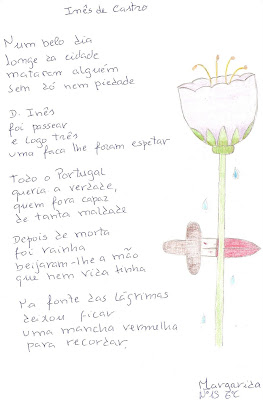 Inês de Castro
Num belo dia
longe da cidade
mataram alguém
sem dó nem piedade
D. Inês
foi passear
e logo três
uma faca lhe foram espetar
Todo o Portugal
queria a verdade,
quem fora capaz
de tanta maldade
Depois de morta
foi rainha
beijaram-lhe a mão
que nem vida tinha
Na fonte das lágrimas
deixou ficar
uma mancha vermelha
para recordar.
Margarida
Nº13 6ºC